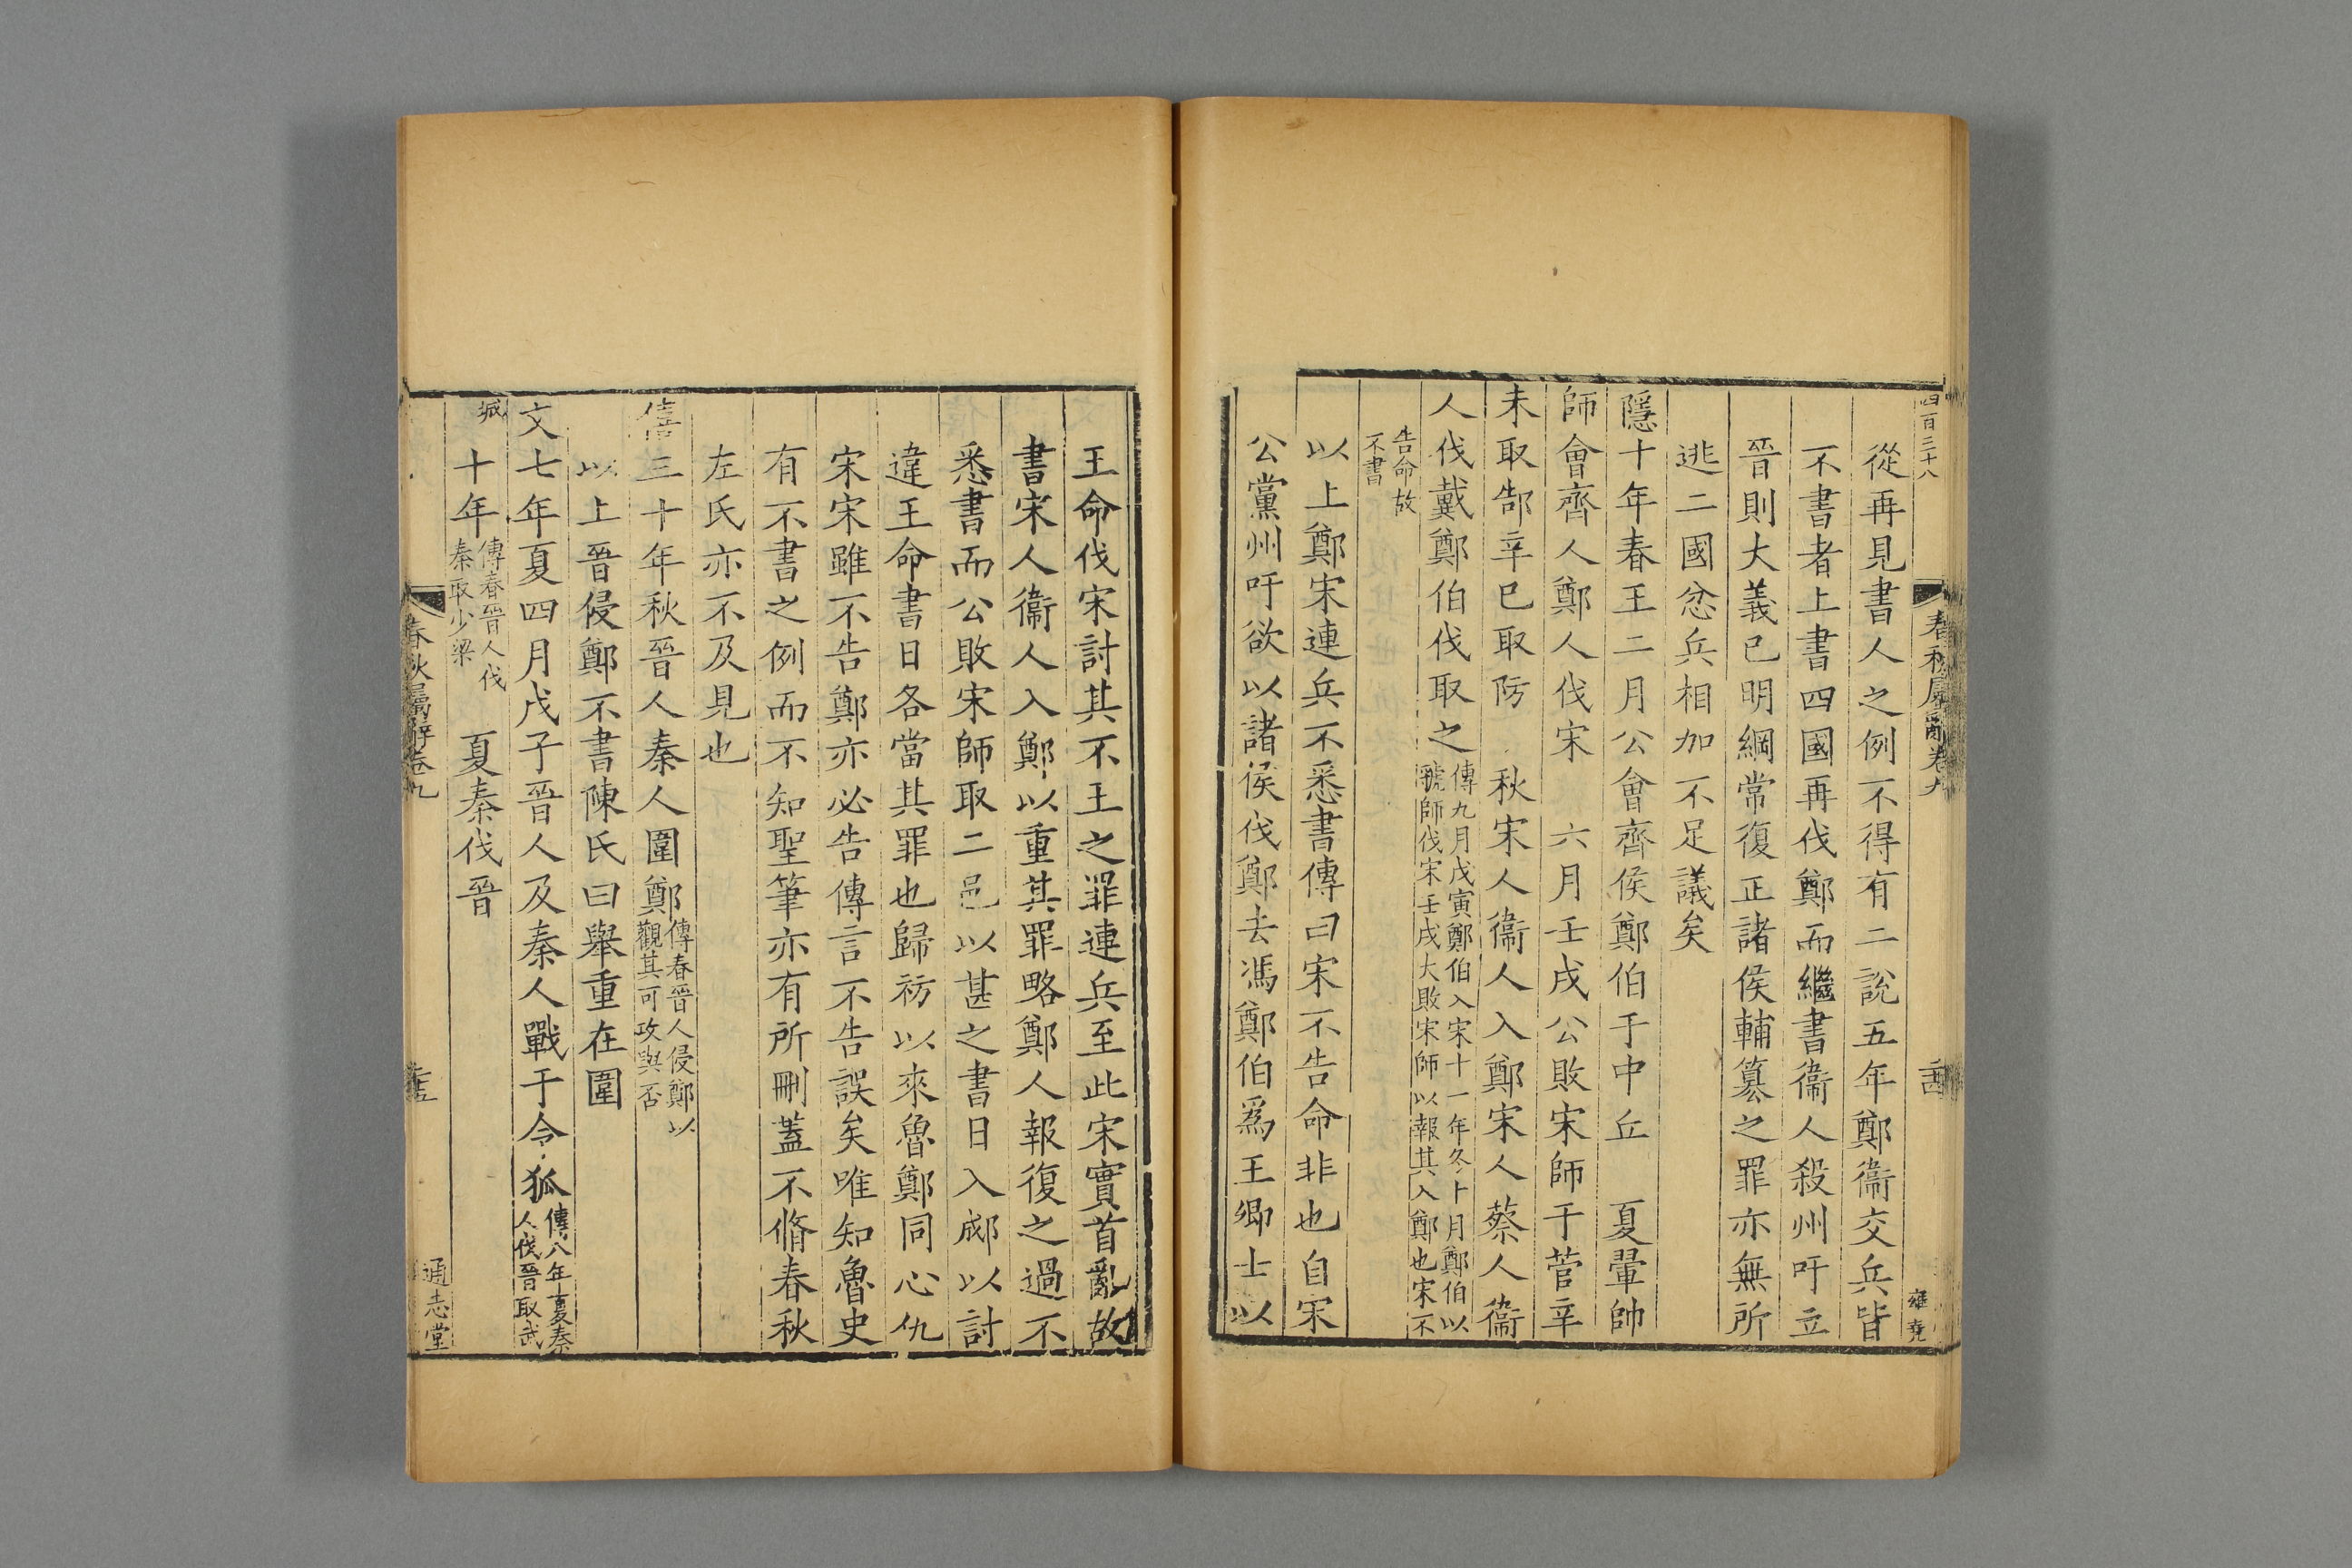 四百三十八
春秋屬辭卷九
雍堯
從再見書人之例不得有二說五年鄭衞交兵皆
不書者上書四國再伐鄭而繼書衞人殺州吁立
晉則大義已明綱常復正諸侯輔簒之罪亦無所
逃二國忿兵相加不足議矣
隱十年春王二月公會齊侯鄭伯于中丘 夏翬帥
師會齊人鄭人伐宋 六月壬戌公敗宋師于菅辛
未取郜辛巳取防 秋宋人衞人入鄭宋人蔡人衞
人伐戴鄭伯伐取之傳九月戊寅鄭伯入宋十一年冬十月鄭伯以
虢師伐宋壬戌大敗宋師以報其入鄭也宋不
告命故
不書
以上鄭宋連兵不悉書傳曰宋不告命非也自宋
公黨州吁欲以諸侯伐鄭去馮鄭伯爲王卿士以
王命伐宋討其不王之罪連兵至此宋實首亂故
書宋人衞人入鄭以重其罪略鄭人報復之過不
悉書而公敗宋師取二邑以甚之書日入郕以討
違王命書日各當其罪也歸祊以來魯鄭同心仇
宋宋雖不告鄭亦必告傳言不告誤矣唯知魯史
有不書之例而不知聖筆亦有所刪蓋不脩春秋
左氏亦不及見也
僖三十年秋晉人秦人圍鄭傳春晉人侵鄭以
觀其可攻與否
以上晉侵鄭不書陳氏曰舉重在圍
文七年夏四月戊子晉人及秦人戰于令狐傳八年夏秦
人伐晉取武
城 十年傳春晉人伐
秦取少梁 夏秦伐晉
春秋屬辭卷九
通志堂